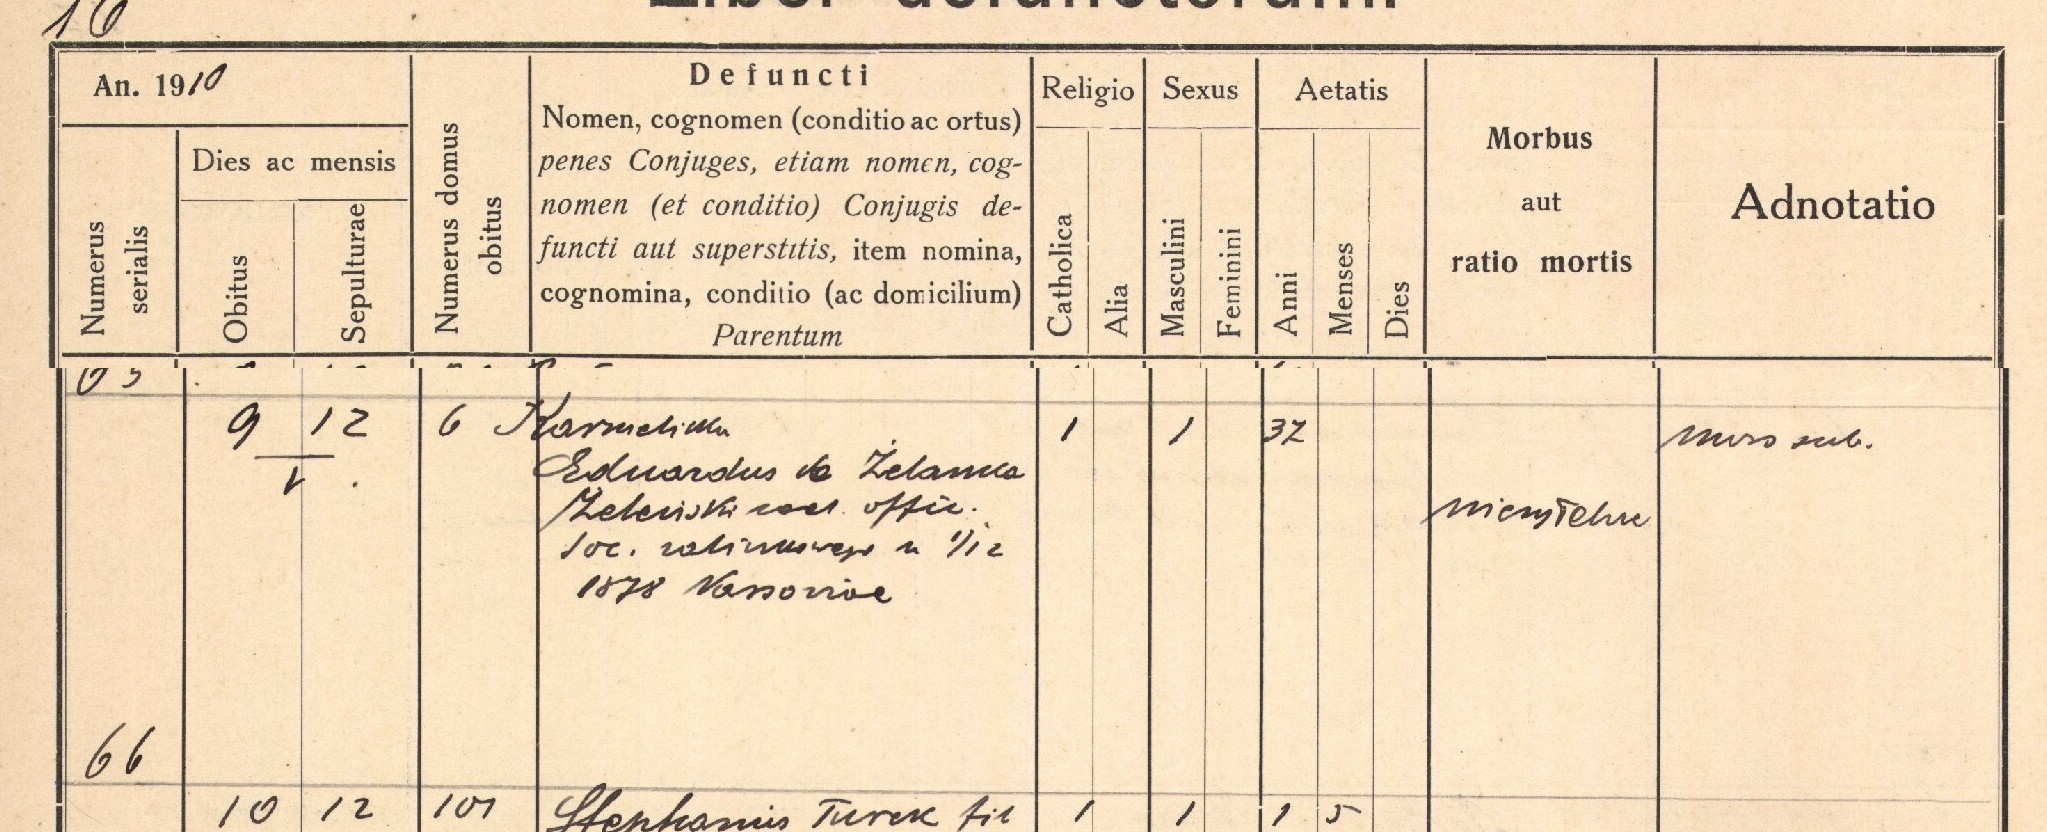 16
Liber defunctorum.
An. 1910
Numerus serialis
Dies ac mensis
Obitus
Sepulturae
Numerus domus obitus
Defuncti
Nomen, cognomen (conditio ac ortus)
penes Conjuges, etiam nomen, cog-
nomen (et conditio) Conjugis de-
functi aut superstitis, item nomina,
cognomina, conditio (ac domicilium)
Parentum
Religio
Catholica
Alia
Sexus
Masculini
Feminini
Aetatis
Anni
Menses
Dies
Morbus
aut
ratio mortis
Adnotatio
65
9 12 6 Karmelicka 1 1 32 mors sub.
Eduardus de Żelanka
1 Żeleński offic.
Soc. 1/12
1878 Varsoviae
66
10 12 101 Stephanus Turek fil 1 1 1 5